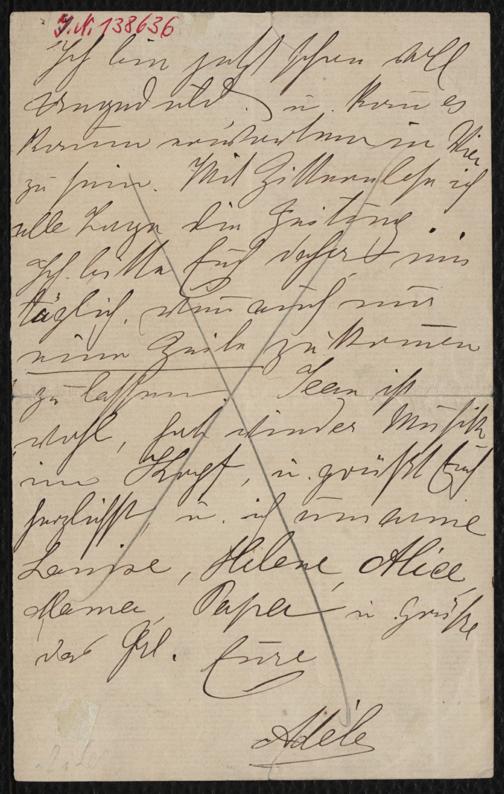 J.N. 138636
Ich bin jetzt schon voll
Ungeduld u. kann es
kaum erwarten in Wien
zu sein. Mit Zittern lese ich
alle Tage die Zeitung.
Ich bitte Euch daher mir
täglich, wenn auch nur
eine Zeile zu kommen
zu lassen. Jean ist
wohl, hat wieder Musik
im Kopf, u. grüßt Euch
herzlichst, u. ich umarme
Louise, Helene, Alice,
Mama, Papa u Grüße
das Frl. Eure
Adele